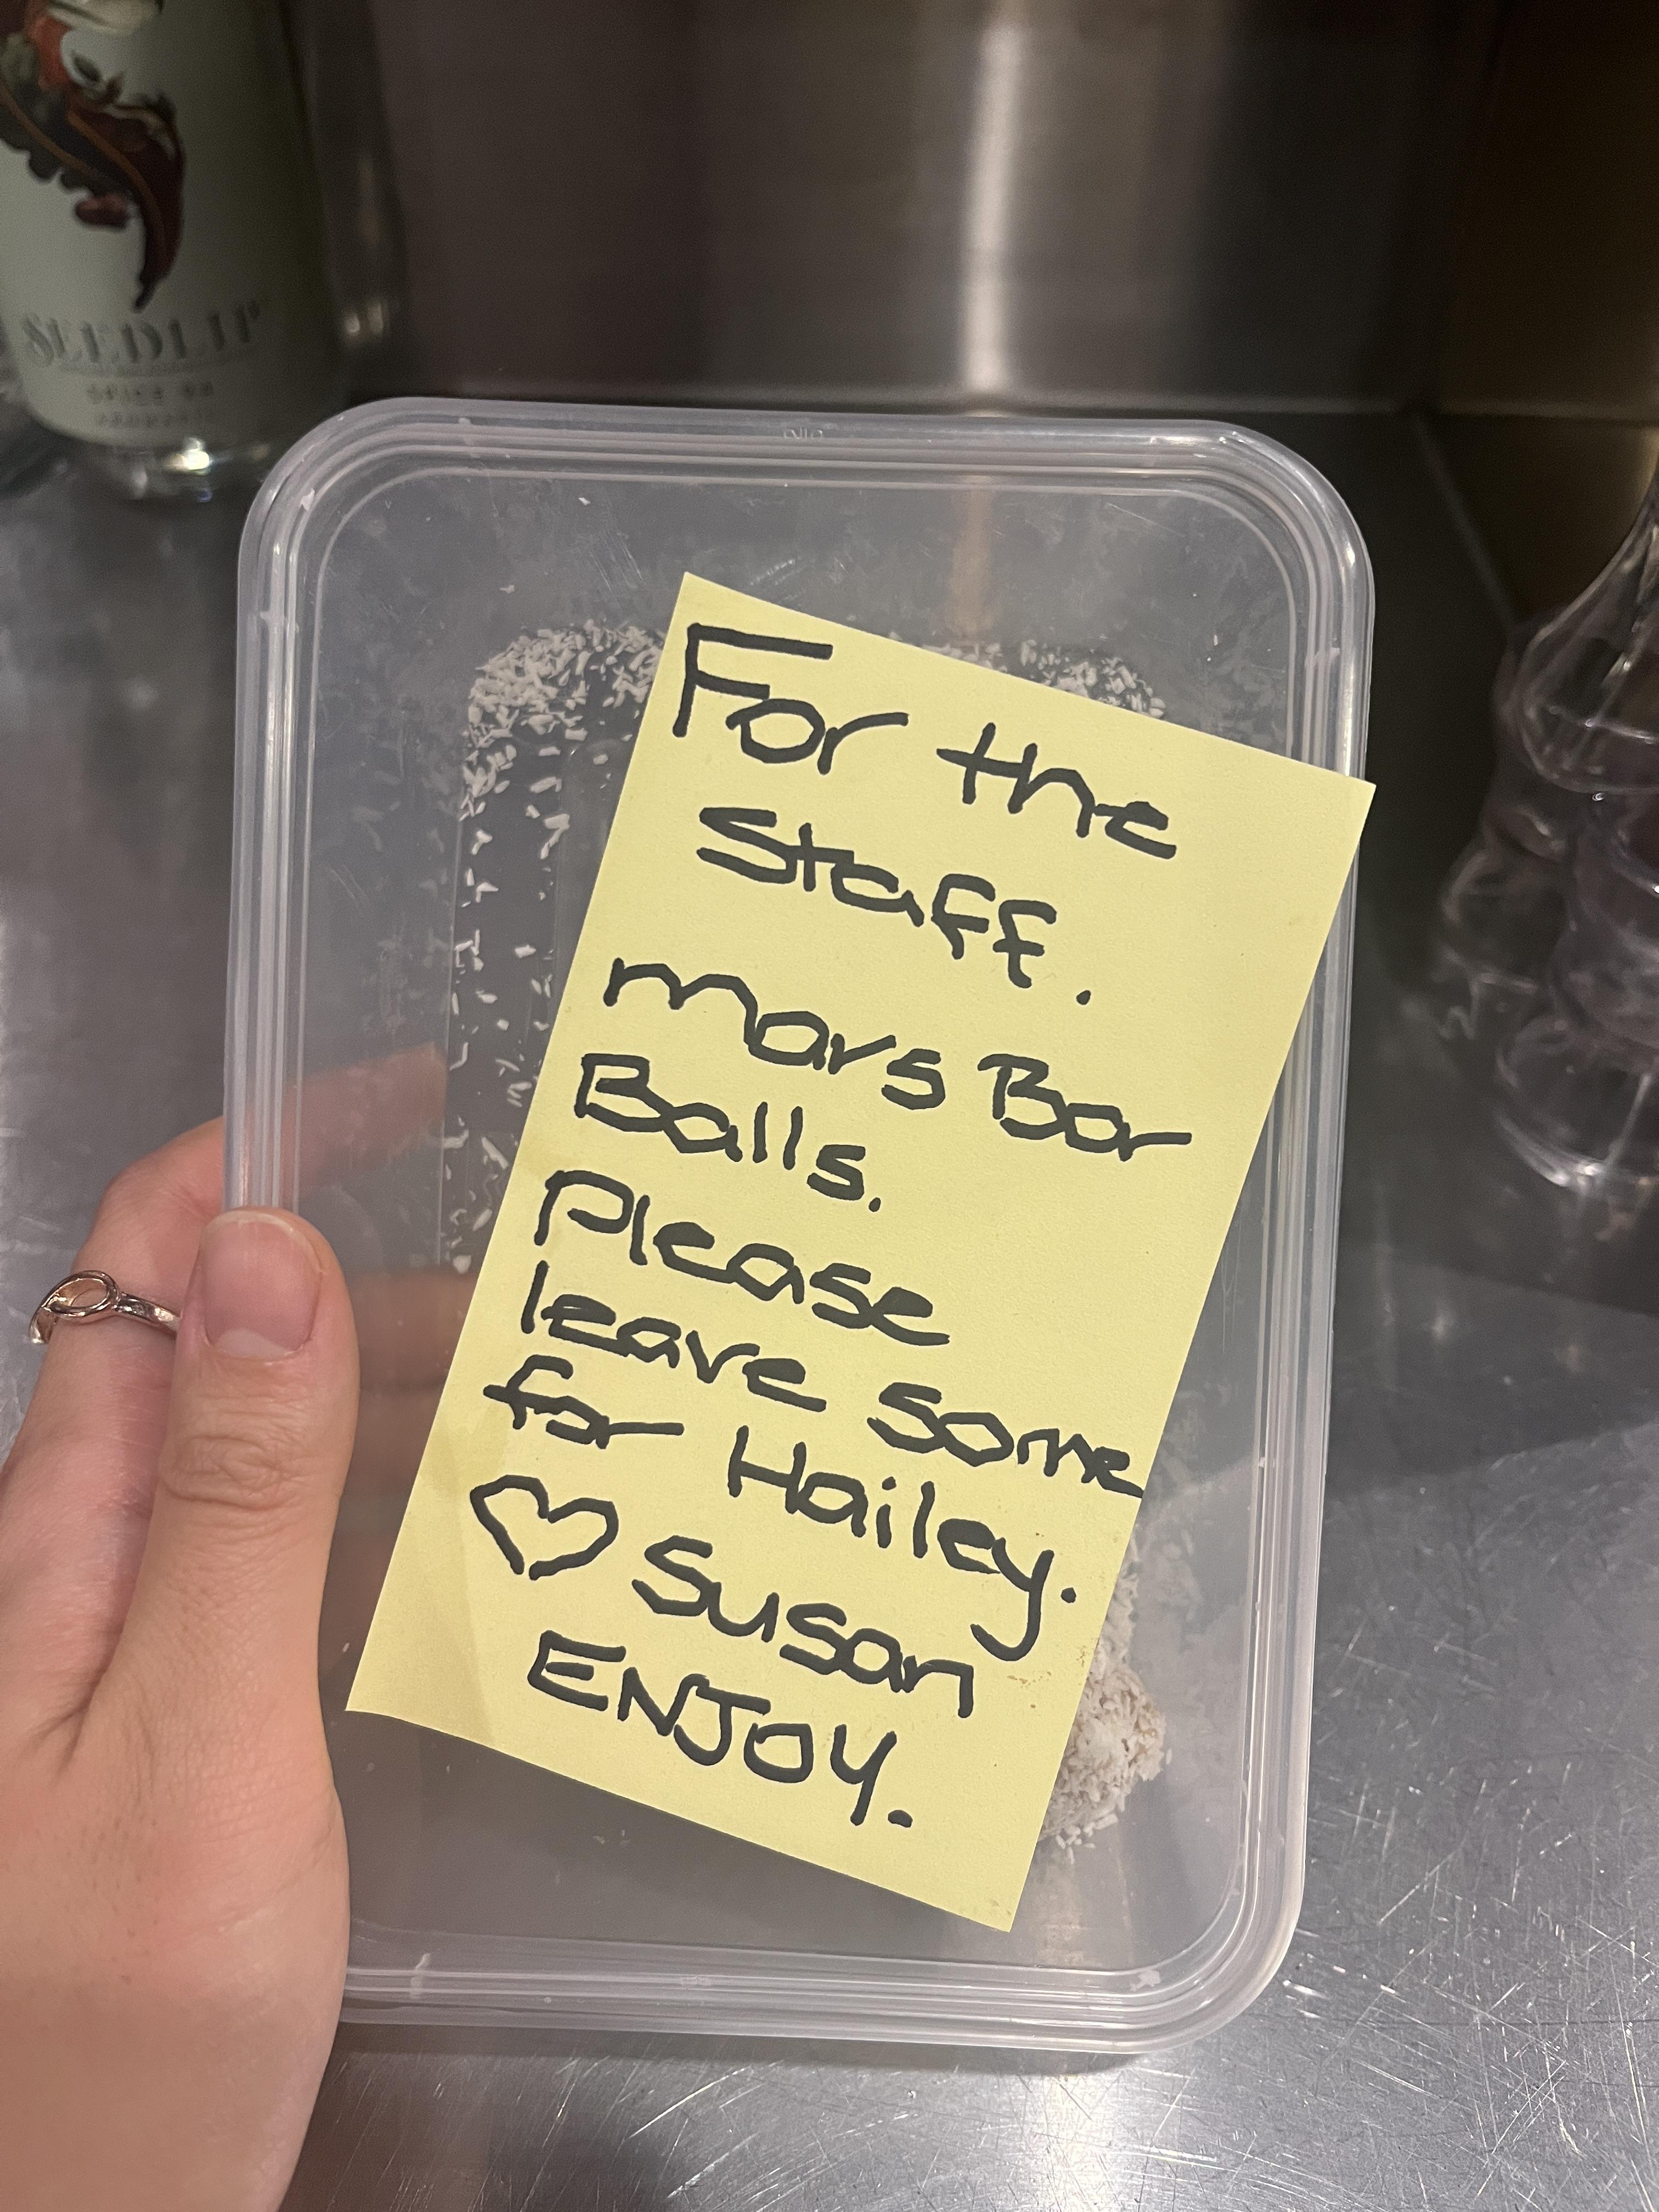 SEEDLIP
SPICE 94
For the
Staff.
Mars Bar
Balls.
Please
leave some
for Hailey.
♡ Susan
ENJOY.